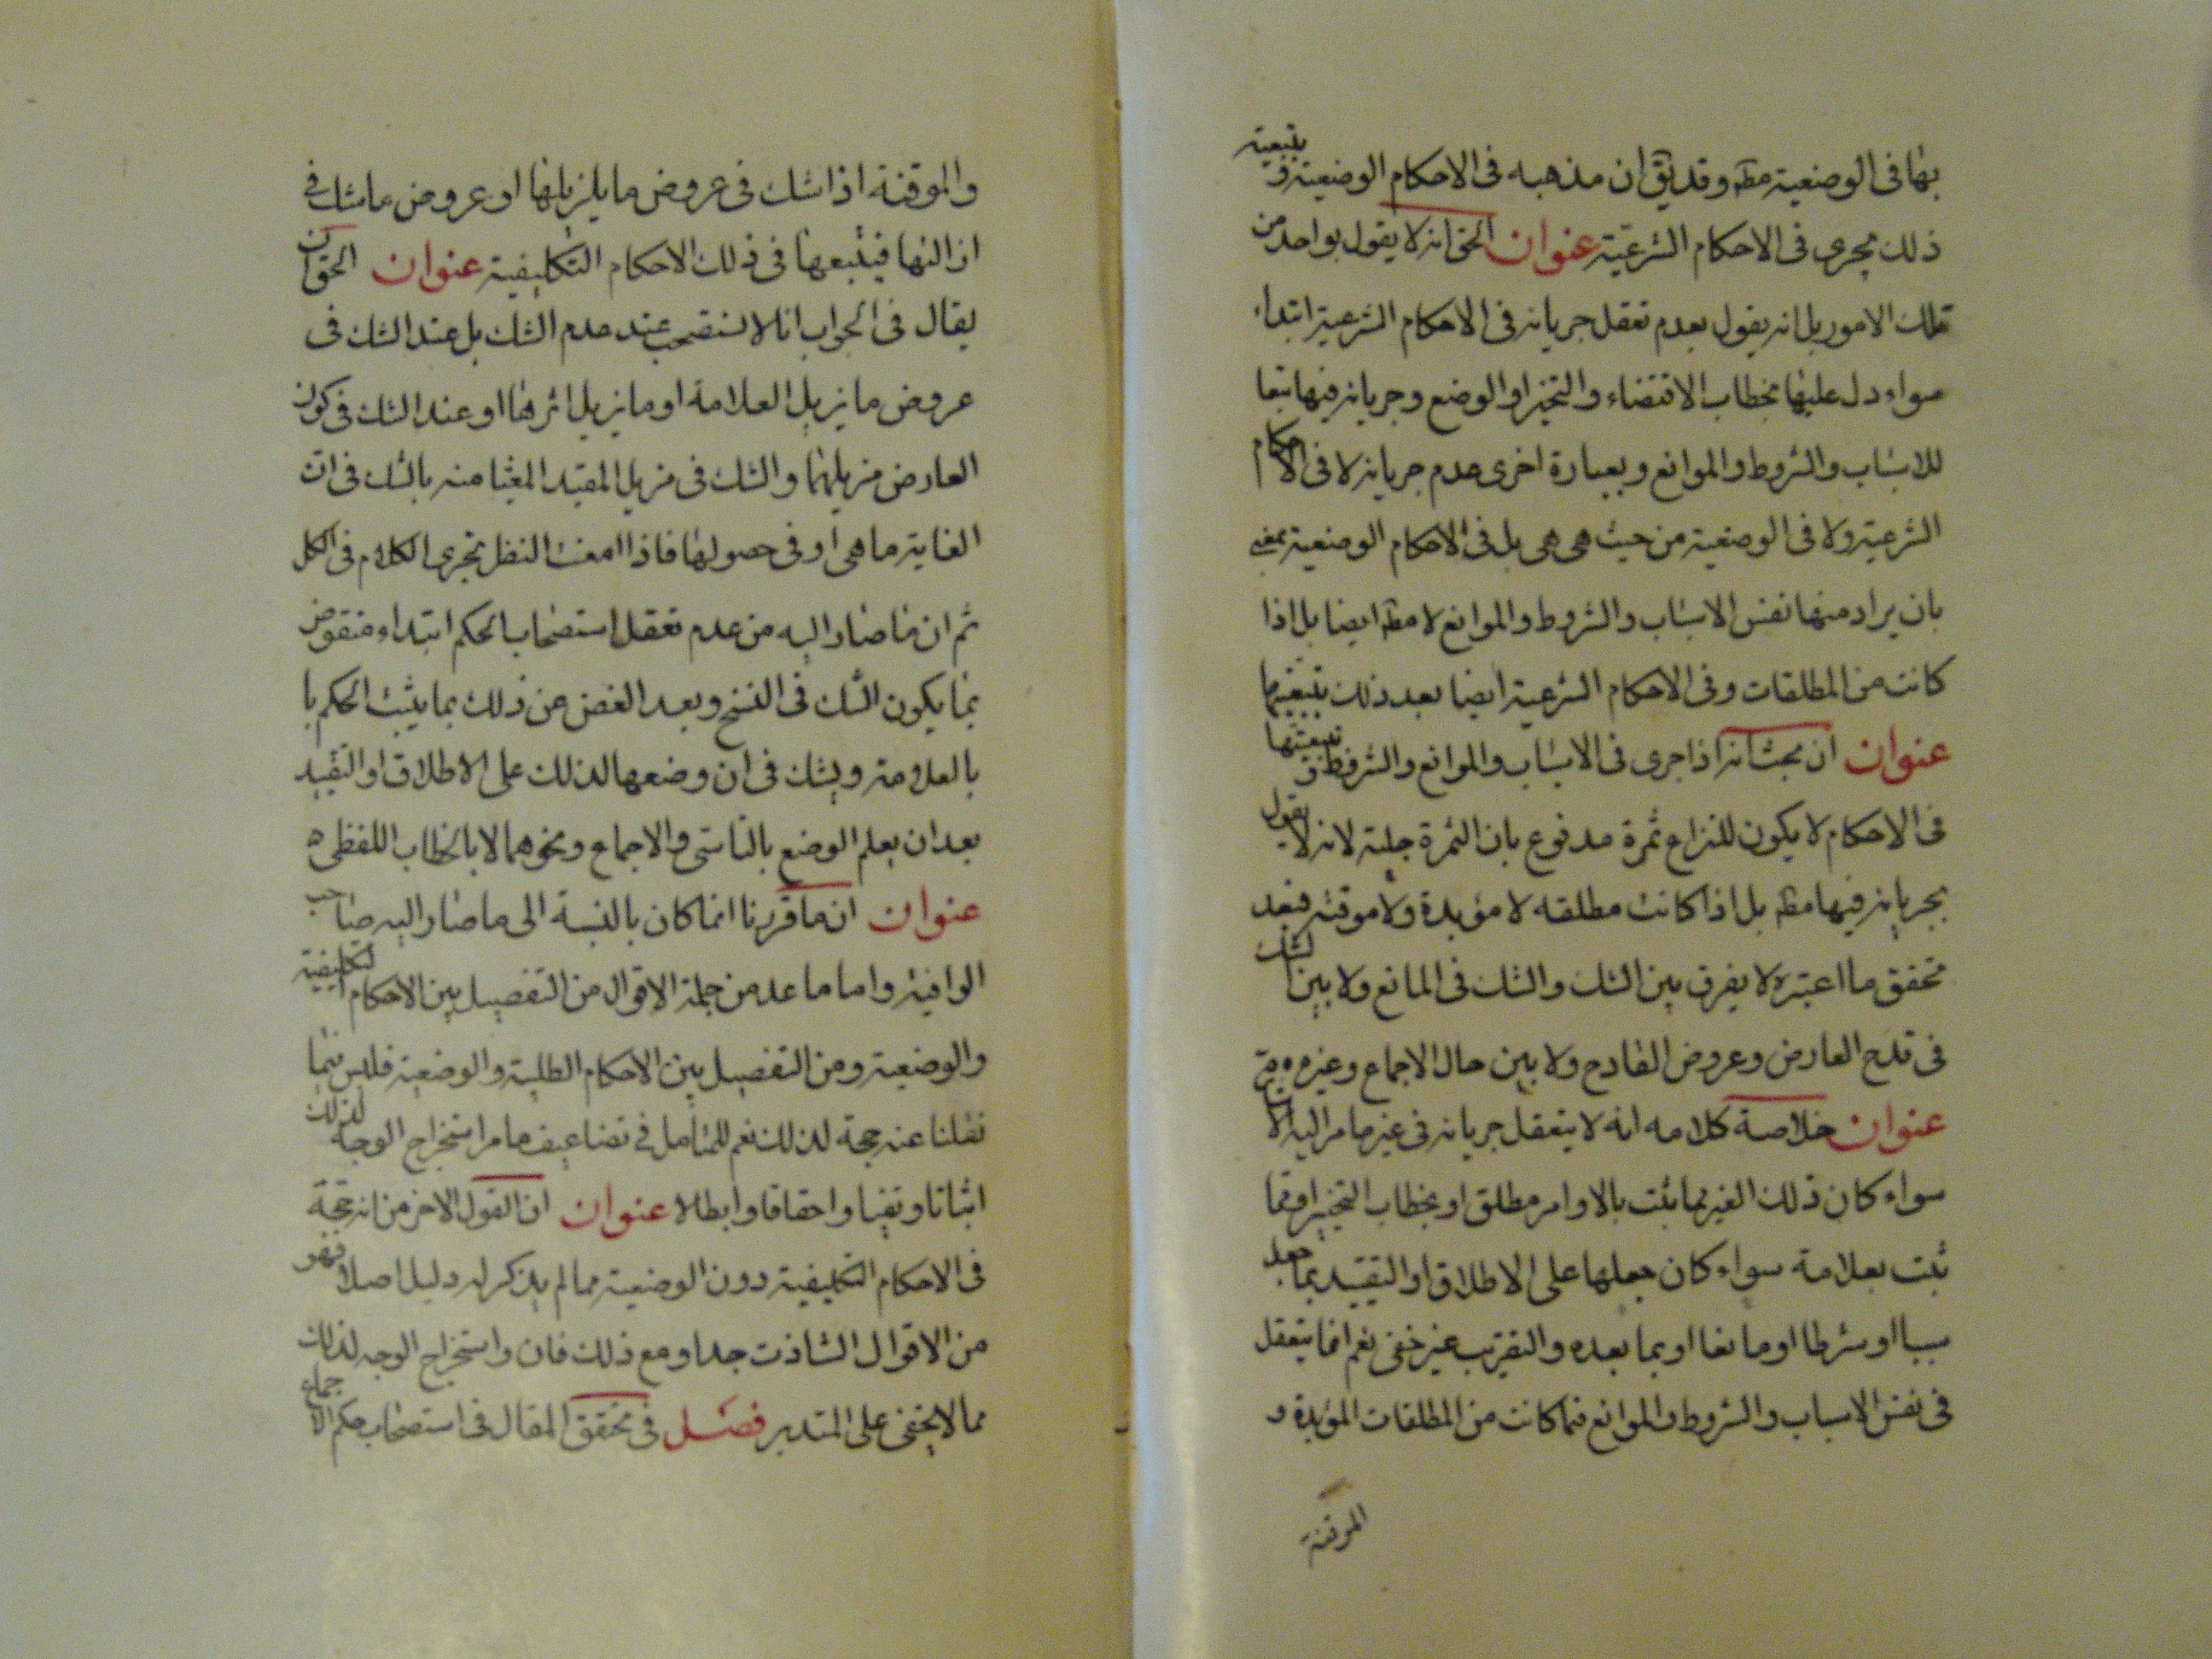 بها فى الوضعية مطم وقد يق ان مذهبه فى الاحكام الوضعية و بتبعية
ذلك يجرى فى الاحكام الشرعية عنوان الحق انه لا يقول بواحد من
تلك الامور بل انه يقول بعدم تعقل جريانه فى الاحكام الشرعية ابتداء
سواء دل عليها بخطاب الاقتضاء والتخير او الوضع وجريانه فيها تبعا
للاسباب والشروط والموانع وبعبارة اخرى عدم جريانه لا فى الاحكام
الشرعية ولا فى الوضعية من حيث هى هى بل فى الاحكام الوضعية بمعنى
بان يراد منها نفس الاسباب والشروط والموانع لا مطم ايضا بل اذا
كانت من المطلقات وفى الاحكام الشرعية ايضا بعد ذلك بتبعيتها
عنوان ان بحث انه اذا جرى فى الاسباب والموانع والشروط و بتبعيتها
فى الاحكام لا يكون للنزاع ثمرة مدفوع بان الثمرة جلية لانه لا يقول
بجريانه فيها مطم بل اذا كانت مطلقه لا مؤبدة ولا موقته فبعد
تحقق ما اعتبره لا يفرق بين الشك والشك فى المانع ولا بين الشك
فى قدح العارض وعروض القادح ولا بين حال الاجماع وغيره
عنوان خلاصة كلامه انه لا يتعقل جريانه فى غير ما مر اليه
سواء كان ذلك الغير مما ثبت بالاوامر مطلق او بخطاب التخيير او مما
ثبت بعلامة سواء كان جعلها على الاطلاق او التقييد بما جعل
سببا او شرطا او مانعا او بما بعده والتقريب غير خفى نعم انما يتعقل
فى نفس الاسباب والشروط والموانع فما كانت من المطلقات المؤبدة و
الموقتة
والموقتة اذا شك فى عروض ما يلزيلها او عروض ما شك فى
ازالتها فيتبعها فى ذلك الاحكام التكليفية عنوان الحق ان
يقال فى الجواب انا لا نستصحب عند عدم الشك بل عند الشك فى
عروض ما يزيل العلامة او ما يزيل اثرها او عند الشك فى كون
العارض مزيلهما والشك فى مزيل المقيد المغيا منه بالشك فى ان
الغاية ما هى او فى حصولها فاذا امعنت النظر تجرى الكلام فى الكل
ثم ان ما صار اليه من عدم تعقل استصحاب الحكم ابتداء منقوض
بما يكون الشك فى النسخ وبعد الغض عن ذلك بما يثبت الحكم با
بالعلامة ويشك فى ان وضعها لذلك على الاطلاق او التقييد
بعد ان يعلم الوضع بالتاسى والاجماع ونحوهما لا بالخطاب اللفظى
عنوان ان ما قررنا انما كان بالنسبة الى ما صار اليه صاحب
الوافية واما ما عد من جملة الاقوال من التفصيل بين الاحكام التكليفية
والوضعية ومن التفصيل بين الاحكام الطلبية والوضعية فليس فيما
نقلنا عنه حجة لذلك نعم للمتامل فى تضاعيف ما مر استخراج الوجه لذلك
اثباتا ونفيا واحقاقا وابطالا عنوان ان القول الاخر من انه حجة
فى الاحكام التكليفية دون الوضعية مما لم يذكر له دليل اصلا فهو
من الاقوال الشاذت جدا ومع ذلك فان واستخراج الوجه لذلك
مما لا يخفى على المتدبر فصل فى تحقق المقال فى استصحاب حكم الاجماع